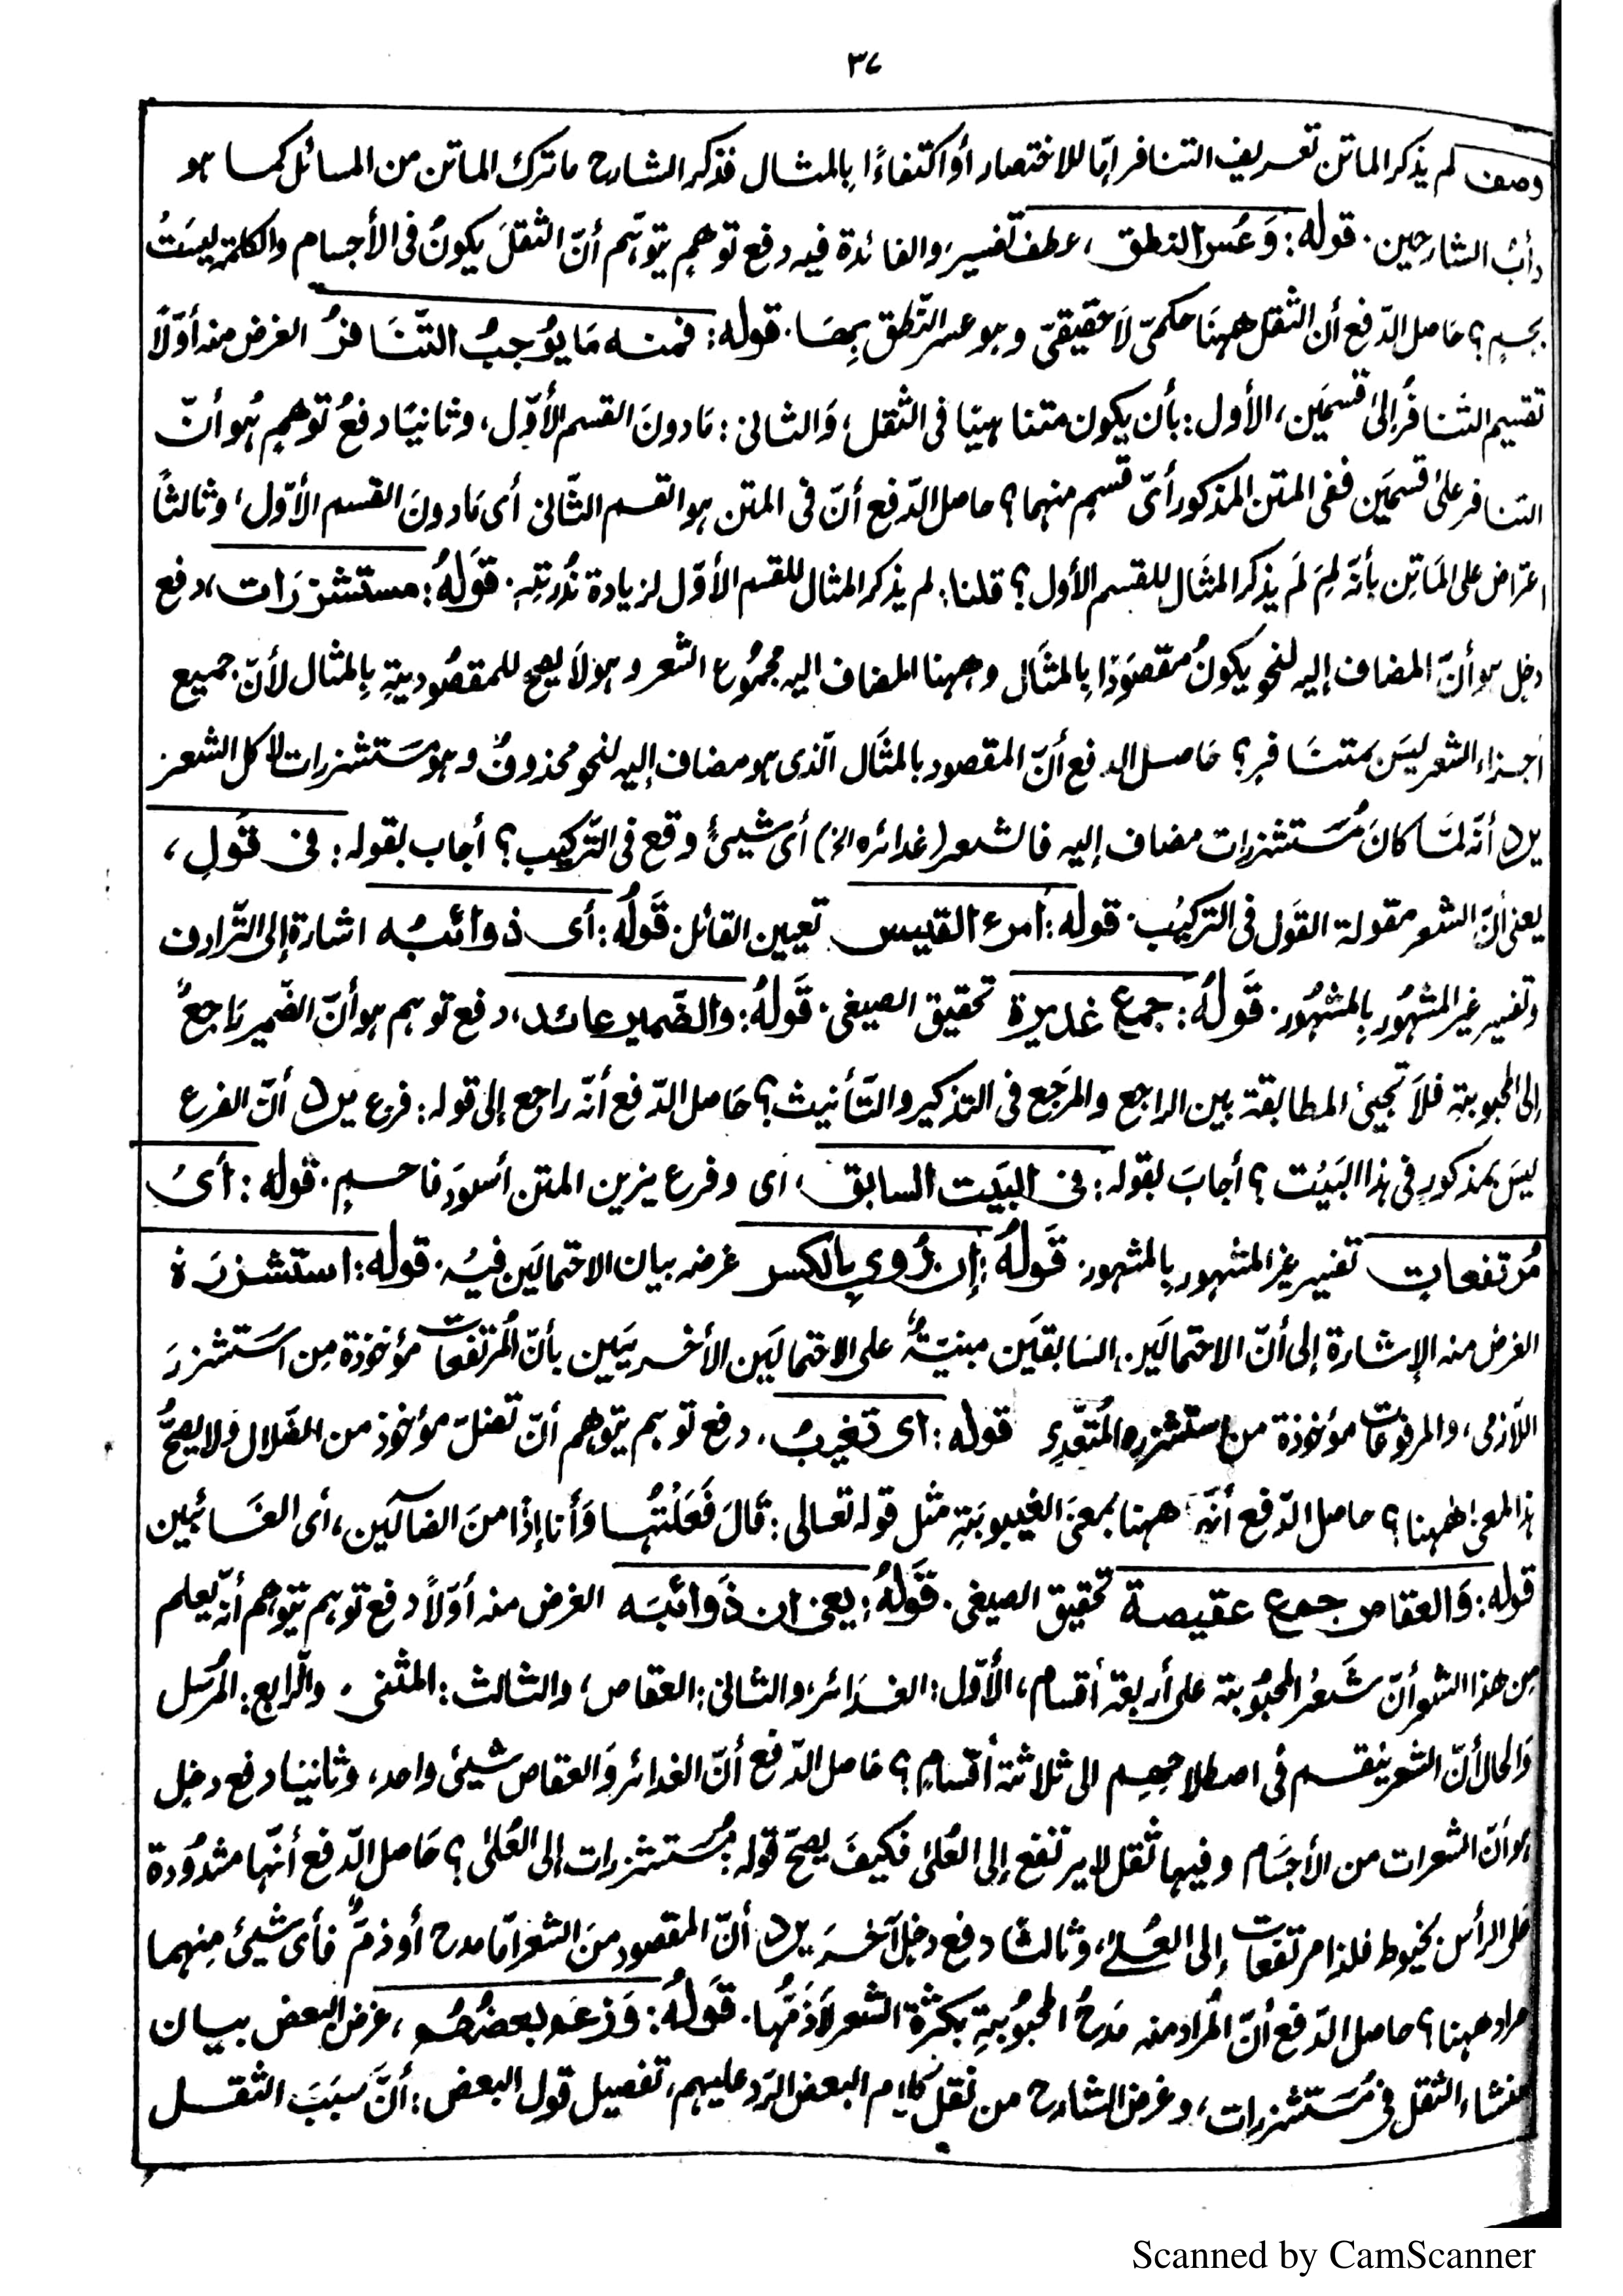 ٣٧
وصف لم يذكر الماتن تعريف التنافر إمّا للاختصار أو اكتفاءًا بالمثال فذكر الشارح ما ترك الماتن من المسائل كما هو
دأب الشارحين. قوله: وَعُسر النطق، عطف تفسير، والفائدة فيه دفع توهم يتوهّم أنّ الثقلَ يكونُ فى الأجسام والكلمة ليسَتُ
بجسمٍ؟ حَاصل الدّفع أن الثقل ههنَا حكمىّ لَا حقيقىّ وهو عسر النّطق بِهَا. قوله: فمنه مَا يُوجبُ التَّنَافرُ الغرض منه أوّلًا
تقسيم التنافر إلىٰ قسمَين، الأول: بأن يكون متناهيًا فى الثقل، وَالثانى: مَا دونَ القسم الأوّل، وثانيًا دفعُ توهمٍ هُو أنّ
التنافر علىٰ قسمَين ففى المتن المذكور أىّ قسمٍ منهما؟ حاصل الدّفع أنّ فى المتن هو القسم الثّانى أى مَا دونَ القسم الأوّل، وثالثًا
اعتراض على المَاتِن بأنّه لِمَ لَم يذكر المثَال للقسم الأول؟ قلنا: لم يذكر المثال للقسم الأوّل لزيادة نُدرتهِ. قوَلهُ: مستشزرَات، دفع
دخل هو أنّ المضاف إليه لنحو يكونُ مقصَودًا بِالمثَال وههنا المضاف اليه مجموُع الشعر وهو لَا يصح للمقصُوديةِ بِالمثال لأنّ جميع
أجزاء الشعر ليسَ بمتنَافرٍ؟ حَاصل الدفع أنّ المقصود بالمثَال الّذى هو مضاف إليه لنحو محذوفٌ وهو مسَتشزرات لا كل الشعر
يرد أنّه لمّا كانَ مُستشزرات مضاف إليه فالشعر (غدائره الخ) أى شيئٍ وقع فى التّركيب؟ أجاب بقوله: فى قَولِ،
يعنى أنّ الشعر مقولة القَول فى التركيُب. قوله: أمرء القيس تعيين القائل. قَولُه: أى ذوائبُه اشارة إلى التّرادف
وتفسير غير المشهُور بِالمشهُور. قَولهُ: جمع غديرة تحقيق الصيغى. قَولهُ: والضّمير عائد، دفع توهم هو أنّ الضّمير رَاجعٌ
إلى المحبوبةِ فلَا تجيئ المطابقة بين الراجع والمرَجَع فى التذكير والتّأنيث؟ حَاصل الدّفع أنّه راجع إلى قوله: فرع يرد أنّ الفرع
ليسَ بمذكور فى هذا البَيُت؟ أجابَ بقوله: فى البَيت السابق، أى وفرع يزين المتن أسوَد فاحمٍ. قوله: أىُ
مُرتفعات تفسير غير المشهور بِالمشهور. قَولهُ: إن رُوى بالكسر غرضه بيان الاحتمالَين فيُه. قوله: استشزرَهُ
الغرض منه الإشارة إلى أنّ الاحتمالَين السَابقَين مبنيّةٌ على الاحتمالَين الأخريَين بأنّ المُرتفعات مؤخوذة مِن استَشزرَ
اللّازمى، والمرفوعات مؤخوذة من استشزره المُتعّدِى قوله: اى تغيبُ، دفع توهم يتوهم أنّ تضلّ مؤخوذ من الضّلال ولا يصحُّ
هذا المعنى ههنا؟ حاصل الدّفع أنّهُ ههنا بمعنَى الغيبوبَةِ مثل قوله تعالى: قَالَ فَعَلْتُهَا وَأنا إذًا منَ الضآلّين، أى الغَائبين
قوله: وَالعقاص جمع عقيصة تحقيق الصيغى. قَولهُ: يعنى ان ذَوائبَه الغرض منه أوّلاً دفع توهم يتوهم أنّه يعلم
مِن هذا الشعر أنّ شَعرُ المحبُوبة على أربعة أقسام، الأوّل: الغدَائر، والثانى: العقاص، والثالث: المثنى، والرّابع: المُرسَل
وَالحال أنّ الشعر ينقسم فى اصطلاحهِم الى ثلاثة أقسامٍ؟ حَاصل الدّفع أنّ الغدائر وَالعقاص شيئ واحد، وثانيًا دفع دخل
هو أنّ الشعرات من الأجسَام وفيها ثقل لا يرتفع إلى العُلىٰ فكيفَ يصحّ قوله: مُستشزرات إلى العُلىٰ؟ حَاصل الدّفع أنّها مشدُودة
على الرأس بخيوط فلذا مرتفعات إلى العُلىٰ، وثالثًا دفع دخل آخرَ يرد أنّ المقصود منَ الشعر امّا مدح أو ذمّ فأى شيئ مِنهما
مراد ههنا؟ حاصل الدّفع أنّ المُراد منه مَدحُ المحبُوبةِ بكثرة الشعر لَا ذَمّها. قَولهُ: وَزعَم بعضُهُم، غرض البعض بيان
منشاء الثقل فى مُستشزرات، وغرض الشارح من نقل كلام البعض الرّد عليهم، تفصيل قول البعض: أنّ سبَبَ الثقل
Scanned by CamScanner